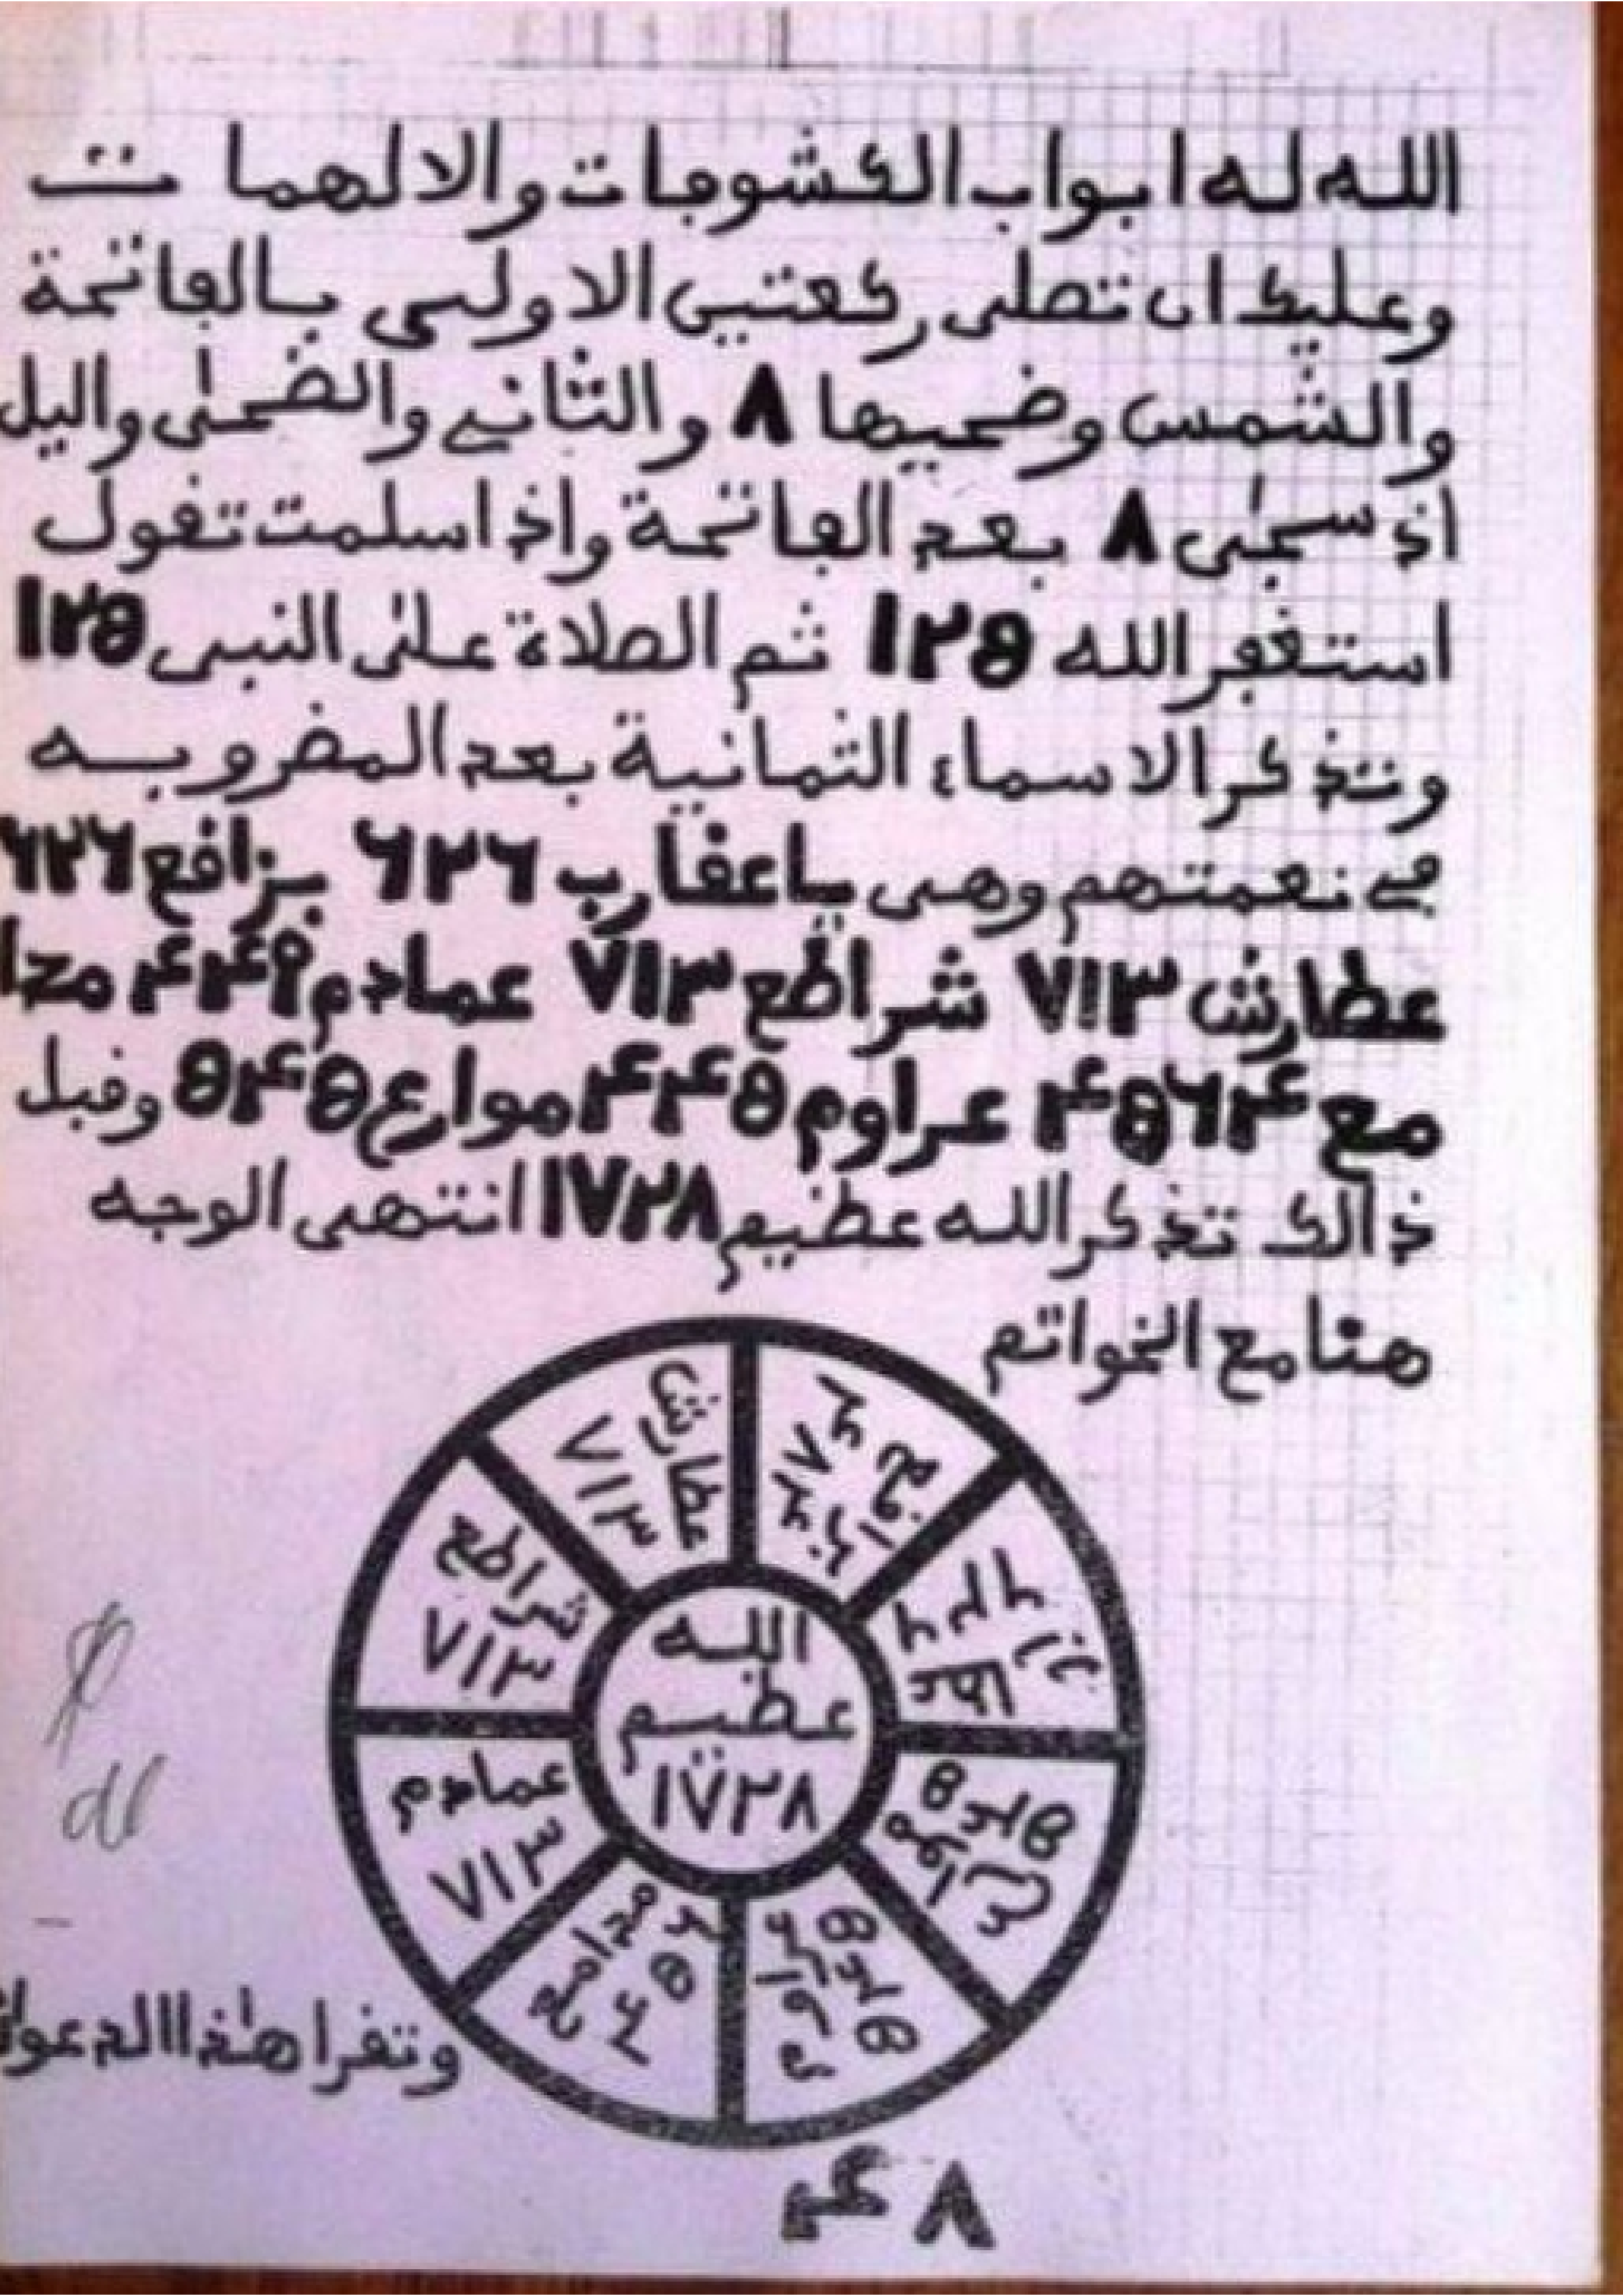 الله له ابواب الكشوفات والالهمات
وعليك ان تصلى ركعتين الاولى بالفاتحة
والشمس وضحيها ٨ والثاني والضحى واليل
اذ سجى ٨ بعد الفاتحة واذا سلمت تقول
استغفر الله ١٢٥ ثم الصلاة على النبى ١٢٥
وتذكر الاسماء الثمانية بعد المضروبه
في نعمتهم وهى ياعقارب ٦٢٦ بزاقع ٦٢٦
عطارش ٧١٣ شراطع ٧١٣ عمادم ٤٤٩ مدا
مع ٤٥٦٤ عراوم ٤٤٥ موارع ٥٤٥ وقبل
ذالك تذكر الله عظيم ١٧٢٨ انتهى الوجه
هنا مع الخواتم
عطارش
٧١٣
بزاقع
شراطع
٧١٣
الله
عظيم
١٧٢٨
عمادم
٧١٣
مدامع
وتقرا هذا الدعوا
٨